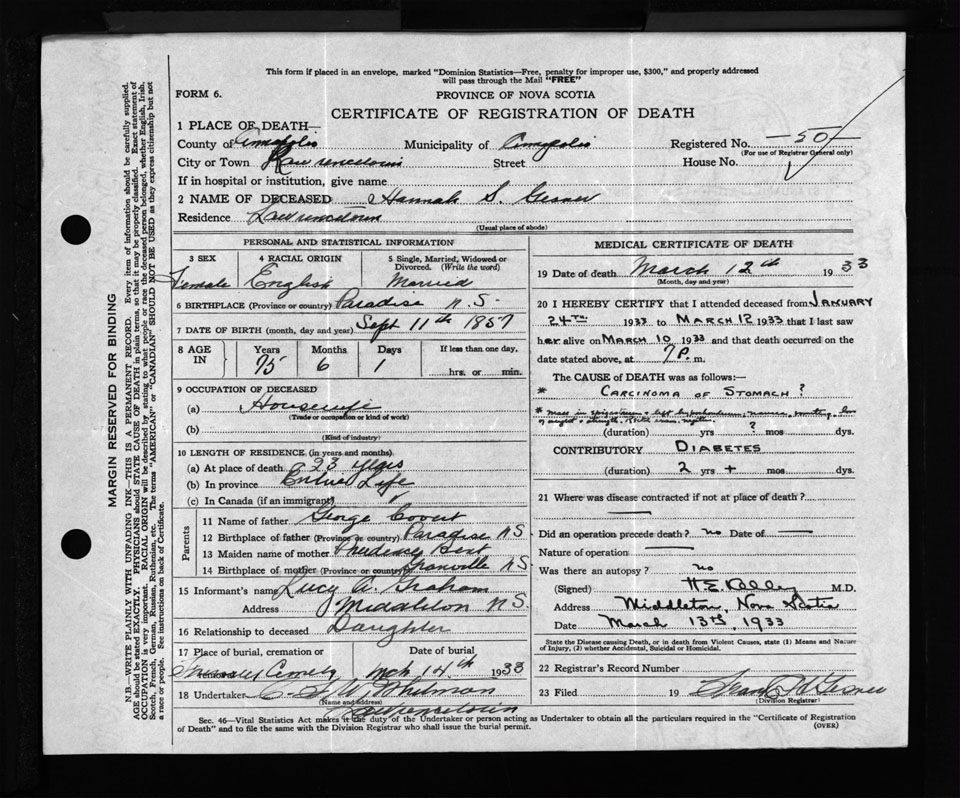 This form if placed in an envelope, marked "Dominion Statistics—Free, penalty for improper use, $300," and properly addressed
will pass through the Mail "FREE"
FORM 6.
PROVINCE OF NOVA SCOTIA
CERTIFICATE OF REGISTRATION OF DEATH
1 PLACE OF DEATH—
County of Annapolis Municipality of Annapolis Registered No. —50—
(For use of Registrar General only)
City or Town Lawrencetown Street House No.
If in hospital or institution, give name
2 NAME OF DECEASED Hannah S. Gesner
Residence Lawrencetown
(Usual place of abode)
PERSONAL AND STATISTICAL INFORMATION
3 SEX 4 RACIAL ORIGIN 5 Single, Married, Widowed or
Divorced. (Write the word)
Female English Married
6 BIRTHPLACE (Province or country) Paradise N.S.
7 DATE OF BIRTH (month, day and year) Sept 11th 1857
8 AGE IN Years Months Days If less than one day,
75 6 1 hrs. or min.
9 OCCUPATION OF DECEASED
(a) Housewife
(Trade or occupation or kind of work)
(b)
(Kind of industry)
10 LENGTH OF RESIDENCE (in years and months)
(a) At place of death 23 years
(b) In province Entire Life
(c) In Canada (if an immigrant)
Parents
11 Name of father George Covert
12 Birthplace of father (Province or country) Paradise NS
13 Maiden name of mother Bent
14 Birthplace of mother (Province or country) Granville NS
15 Informant's name Lucy A. Graham
Address Middleton NS.
16 Relationship to deceased Daughter
17 Place of burial, cremation or removal Date of burial
Mch 14th 1933
18 Undertaker Whitman
(Name and address)
Lawrencetown
MEDICAL CERTIFICATE OF DEATH
19 Date of death March 12th 1933
(Month, day and year)
20 I HEREBY CERTIFY that I attended deceased from JANUARY
24TH 1933 to MARCH 12 1933 that I last saw
her alive on MARCH 10 1933 and that death occurred on the
date stated above, at 7 P. m.
The CAUSE of DEATH was as follows:—
* CARCINOMA OF STOMACH ?
* Mass in epigastrium & left hypochondrium, nausea, vomiting, loss
of weight & strength.
(duration) yrs ? mos dys.
CONTRIBUTORY DIABETES
(duration) 2 yrs + mos dys.
21 Where was disease contracted if not at place of death?
Did an operation precede death? no Date of
Nature of operation
Was there an autopsy? no
(Signed) H.E. Kelley M.D.
Address Middleton, Nova Scotia
Date March 13th, 1933
State the Disease causing Death, or in death from Violent Causes, state (1) Means and Nature
of Injury, (2) whether Accidental, Suicidal or Homicidal.
22 Registrar's Record Number
23 Filed 19 Gesner
(Division Registrar)
Sec. 46—Vital Statistics Act makes it the duty of the Undertaker or person acting as Undertaker to obtain all the particulars required in the "Certificate of Registration
of Death" and to file the same with the Division Registrar who shall issue the burial permit.
(OVER)
MARGIN RESERVED FOR BINDING
N.B.—WRITE PLAINLY WITH UNFADING INK—THIS IS A PERMANENT RECORD. Every item of information should be carefully supplied.
AGE should be stated EXACTLY. PHYSICIANS should STATE CAUSE OF DEATH in plain terms, so that it may be properly classified. Exact statement of
OCCUPATION is very important. RACIAL ORIGIN will be described by stating to what people or race the deceased person belonged, whether English, Irish,
Scotch, French, German, Russian, Ruthenian, etc. The terms "AMERICAN" or "CANADIAN" SHOULD NOT BE USED as they express citizenship but not
a race or people. See instructions on back of Certificate.